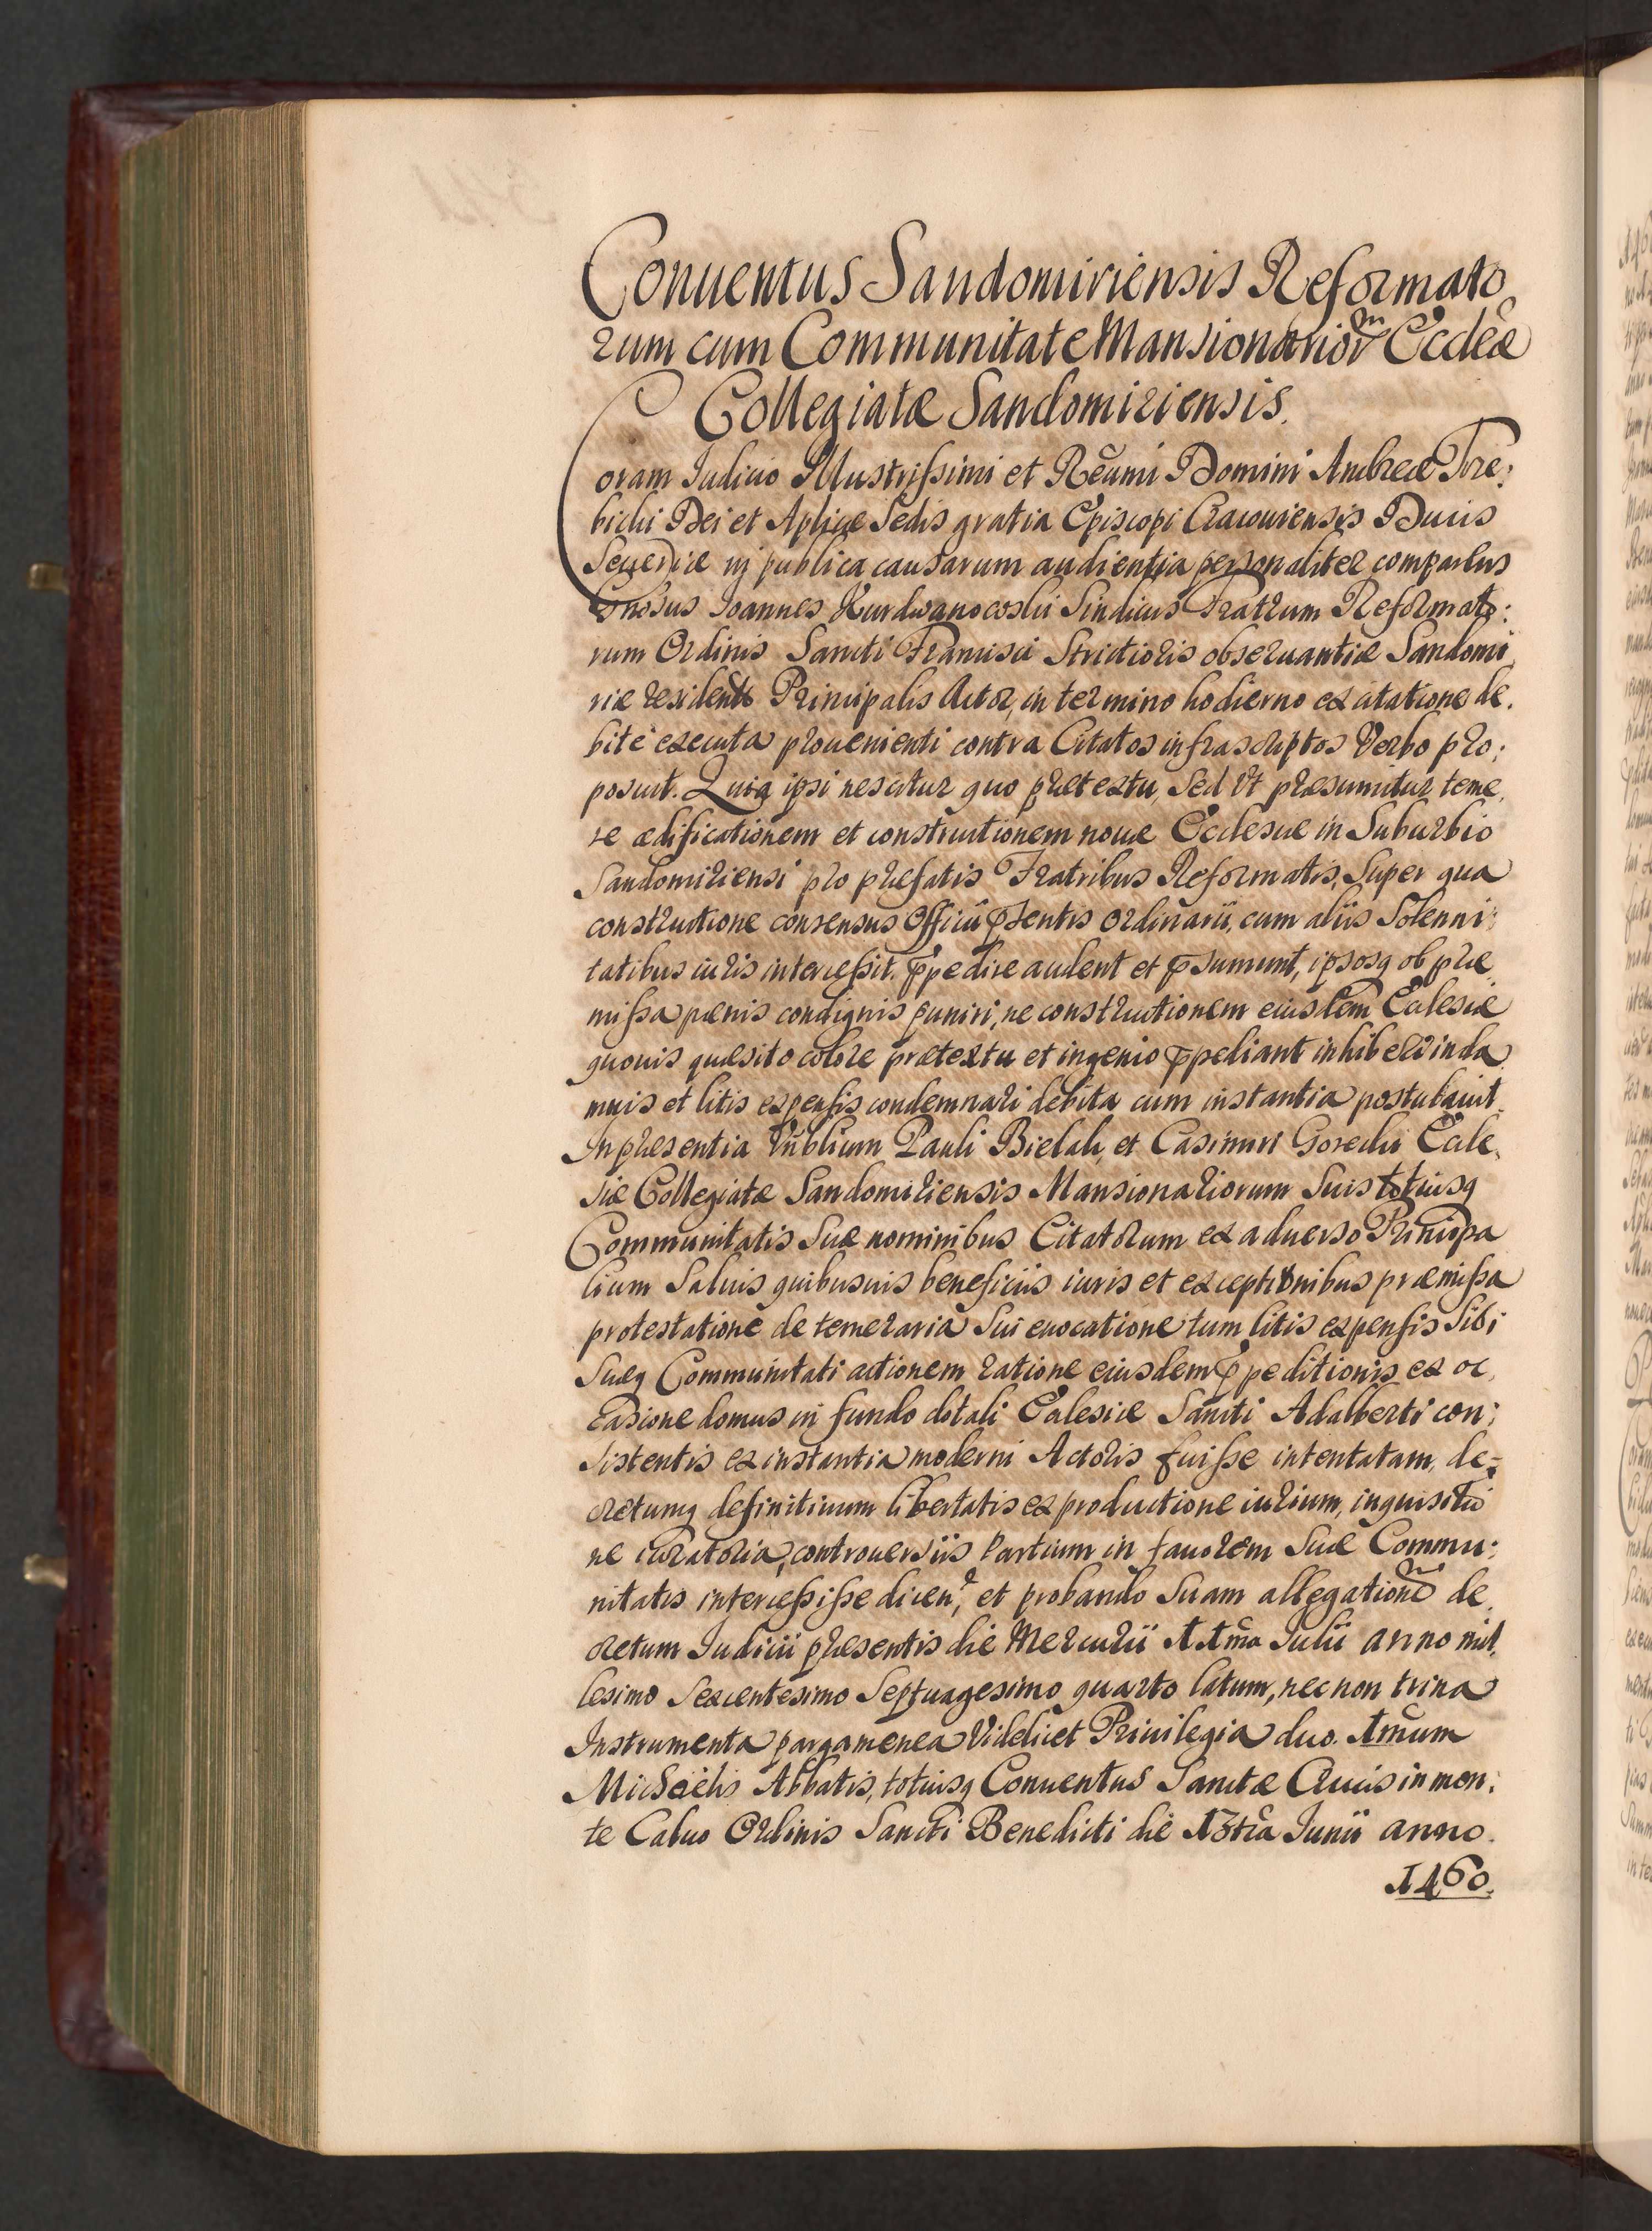 Conuentus Sandomiriensis Reformato
rum cum Communitate Mansionariorũ Eccl̃æ
Collegiatæ Sandomiriensis.
Coram Iudicio Illustrissimi et Rẽumi Domini Andreæ Tre:
bicki Dei et Aplicæ Sedis gratia Episcopi Cracouiensis Ducis
Seueriæ in publica causarum audientia personaliter comparens
Gnosus Ioannes Kurdwanocoski Sindicus Fratrum Reformato:
rum Ordinis Sancti Francisci Strictioris obseruantiæ Sandomi
riæ residents Principalis Actor, in termino hodierno ex citatione de.
bitè executa prouenienti contra Citatos infrascriptos Verbo pro:
posuit. Quia ipsi nescitur quo prætextu, Sed Vt præsumitur teme,
re ædificationem et constructionem nouæ Ecclesiæ in Suburbio
Sandomiriensi pro præfatis Fratribus Reformatis, Super qua
constructione consensus Officii p̃sentis ordinarii, cum aliis Solenni:
tatibus iuris intercessit. p̃pedire audent et p̃sumunt, ipsosq ob præ
missa pœnis condignis puniri, ne constructionem eiusdem Ecclesiæ
quouis quæsito colore prætextu et ingenio p̃pediant inhiberi in da
mnis et litis expensis condemnari debita cum instantia postulauit.
In præsentia Vñblium Pauli Bielah, et Casimiri Gorecki Eccle,
siæ Collegiatæ Sandomiriensis Mansionariorum Suis totiusq
Communitatis Suæ nominibus Citatorum ex aduerso Principa
lium Saluis quibusuis beneficiis iuris et exceptionibus præmissa
protestatione de temeraria Sui euocatione tum litis expensis Sibi
Suæq Communitati actionem ratione eiusdem p̃peditionis ex oc,
casione domus in fundo dotali Ecclesiæ Sancti Adalberti con:
sistentis ex instantia moderni Actoris fuisse intentatam, de:
cretumq definitiuum libertatis ex productione iurium, inquisitio
ne iuratoria, controuersiis Partium in fauorem Suæ Commu:
nitatis intercessisse dicen, et probando Suam allegationẽ de
cretum Iudicii præsentis die Mercurii 11ma Iulii anno mil,
lesimo Sexcentesimo Septuagesimo quarto latum, nec non trina
Instrumenta pargamenea Videlicet Priuilegia duo. 1mum
Michaelis Abbatis, totiusq Conuentus Sanctæ Crucis in mon:
te Caluo Ordinis Sancti Benedicti die 13tia Iunii anno.
1460.